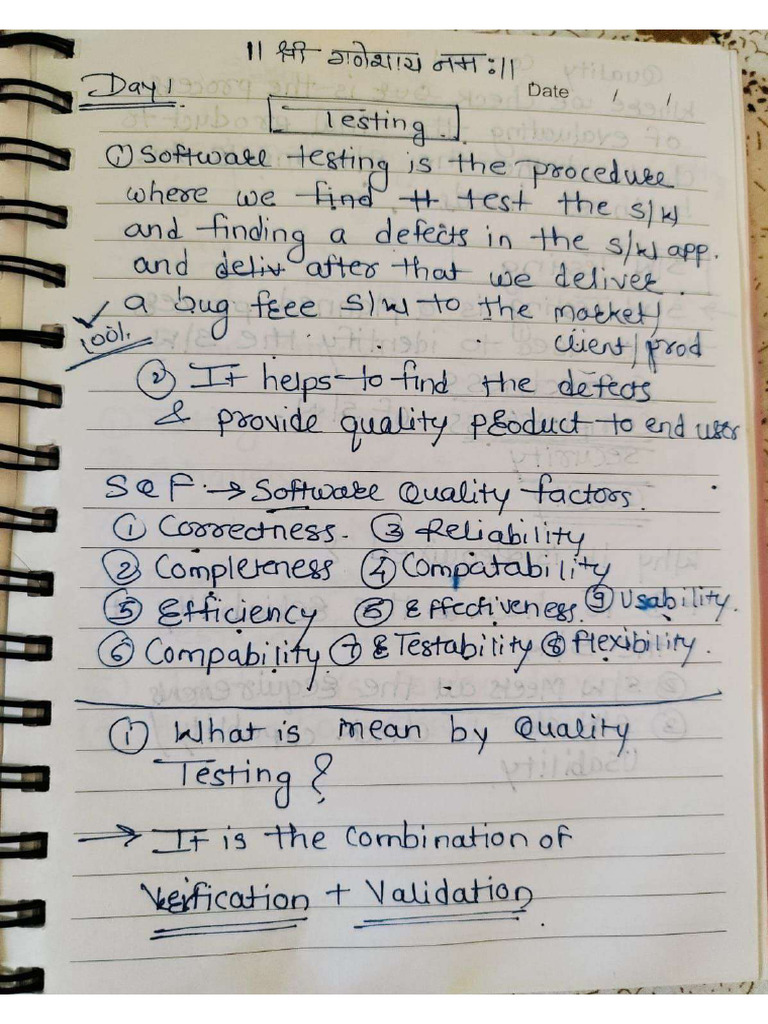 ॥ श्री गनेशाय नमः॥
Day 1
Date / /
Testing.
① Software testing is the procedure
where we find tt test the s/w
and finding a defects in the s/w app.
and deliv after that we deliver.
a bug free s/w to the market/
100%. client/prod
② It helps to find the defects
& provide quality product to end user
SQF. → Software Quality factors.
① Correctness. ③ Reliability
② Completeness ④ Compatability
⑤ Efficiency ⑥ Effectiveness. ⑨ Usability.
⑥ Compability ⑦ & Testability ⑧ flexibility.
① What is mean by Quality
Testing?
→ It is the combination of
Verification + Validation.